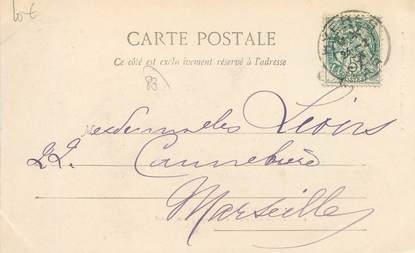 10€
CARTE POSTALE
Ce côté est exclusivement réservé à l'adresse
83
Mesdemoiselles
22. Cannebière
Marseille